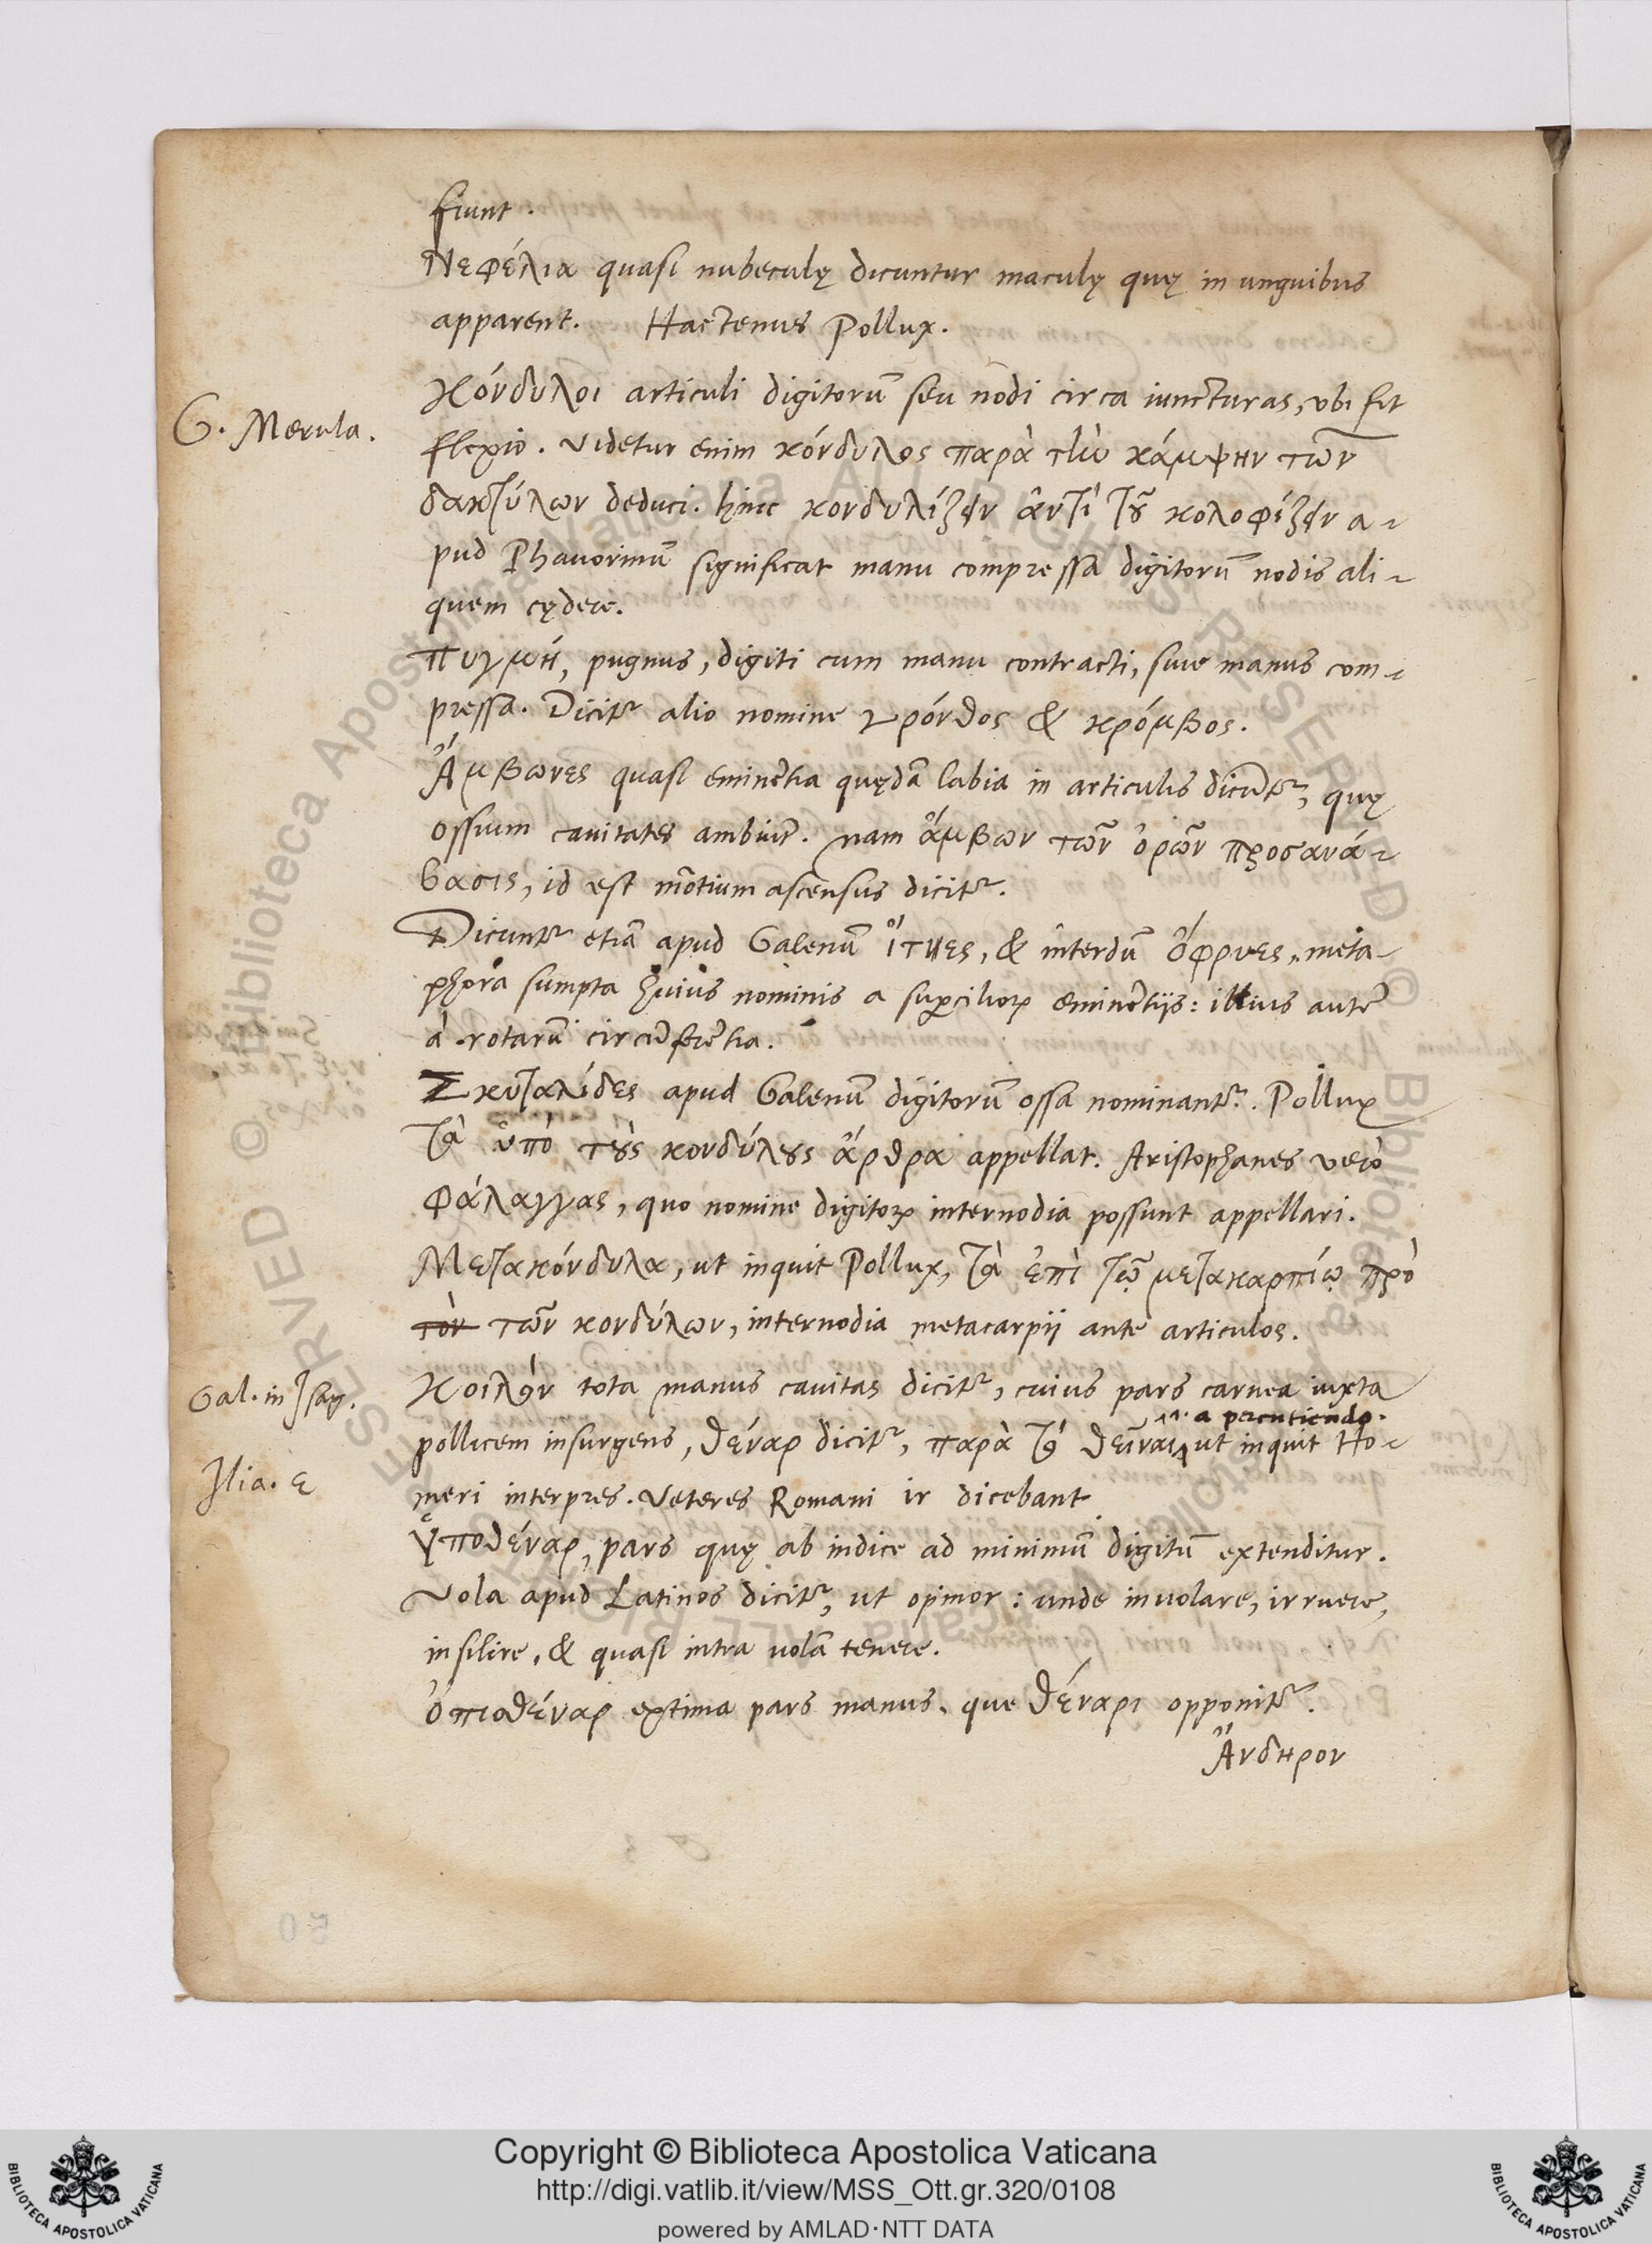 fiunt.
Νεφέλια quasi nubeculę dicuntur maculę quę in unguibus
apparent. Hactenus Pollux.
G. Merula.
Κόνδυλοι articuli digitorū seu nodi circa iuncturas, ubi fit
flexio. Videtur enim κόνδυλος παρὰ τὴν κάμψην τῶν
δακτύλων deduci. hinc κονδυλίζειν ἀντὶ τοῦ κολοφίζειν a-
pud Phauorinū significat manu compressa digitorū nodis ali-
quem cędere.
πυγμή, pugnus, digiti cum manu contracti, siue manus com-
pressa. Dicitr alio nomine γρόνθος & κρόμβος.
Ἄμβωνες quasi eminētia quędā labia in articulis dicūtr, quę
ossium cauitates ambiūt. nam ἄμβων τῶν ὀρῶν προσανά-
βασις, id est mōtium ascensus dicitr.
Dicuntr etiā apud Galenū ἴτυες, & interdū ὄφρυες, meta-
phora sumpta huius nominis a supercilioꝝ eminētijs: illius autē
à rotarū circūferētia.
Σκυταλίδες apud Galenū digitorū ossa nominantr. Pollux
τὰ ὑπὸ τοὺς κονδύλους ἄρθρα appellat. Aristophanes uero
φάλαγγας, quo nomine digitoꝝ internodia possunt appellari.
Μετακόνδυλα, ut inquit Pollux, τὰ ἐπὶ τῷ μετακαρπίῳ πρὸ
τὸν τῶν κονδύλων, internodia metacarpii ante articulos.
Gal. in Isag.
Κοιλὸν tota manus cauitas dicitr, cuius pars carnea iuxta
a percutiendo.
pollicem insurgens, θέναρ dicitr, παρὰ τὸ θεῖναι, ut inquit Ho-
Ilia. ε
meri interpres. Veteres Romani ir dicebant.
Ὑποθέναρ, pars quę ab indice ad minimū digitū extenditur.
Vola apud Latinos dicitr, ut opinor: unde inuolare, irruere,
insilire, & quasi intra uolā tenere.
Ὀπιοθέναρ extima pars manus, que θέναρι opponitr.
Ἄνδηρον
Copyright © Biblioteca Apostolica Vaticana
http://digi.vatlib.it/view/MSS_Ott.gr.320/0108
powered by AMLAD·NTT DATA